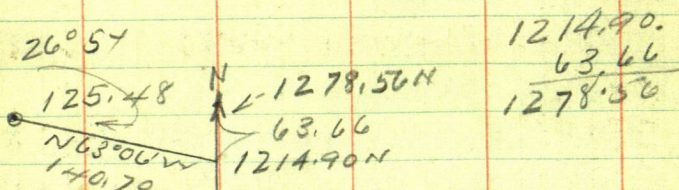 26°54
125.48
N63°06'W
140.70
N
1278.56N
63.66
1214.90N
1214.90.
63.66
1278.56